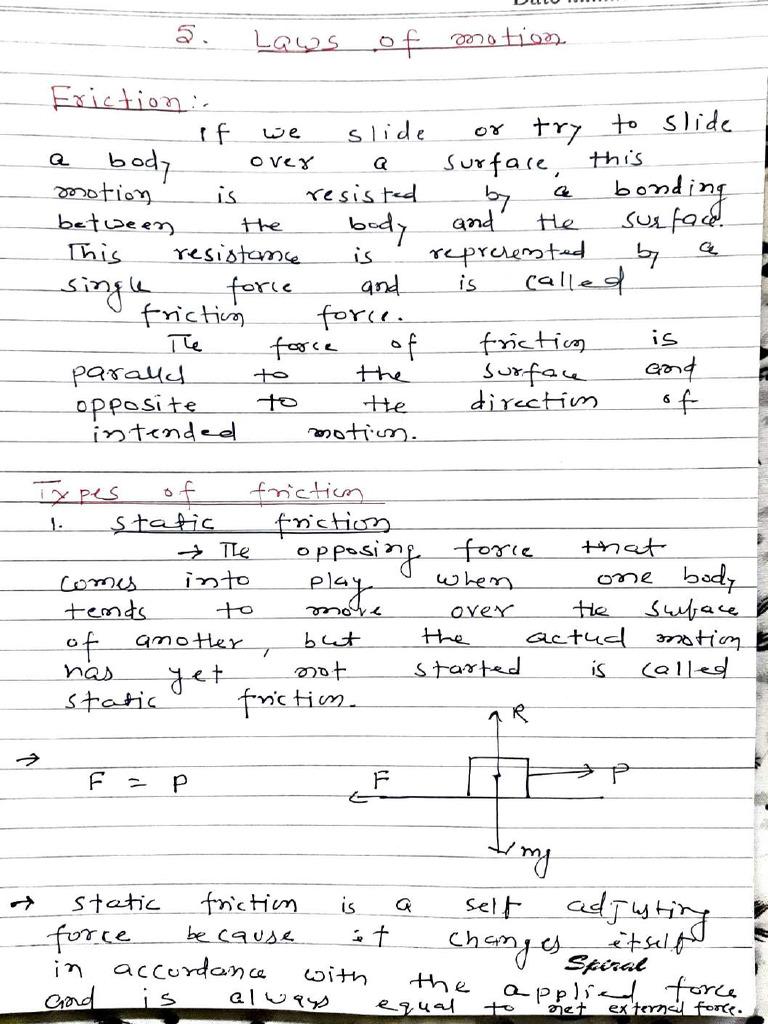 5. Laws of motion
Friction :-
If we slide or try to slide
a body over a surface, this
motion is resisted by a bonding
between the body and the surface.
This resistance is represented by a
single force and is called
friction force.
The force of friction is
parallel to the surface and
opposite to the direction of
intended motion.
Types of friction
1. static friction
→ The opposing force that
comes into play when one body
tends to move over the surface
of another, but the actual motion
has yet not started is called
static friction.
R
→
F = P
F
P
mg
→ static friction is a self adjusting
force because it changes itself
Spiral
in accordance with the applied force
and is always equal to net external force.